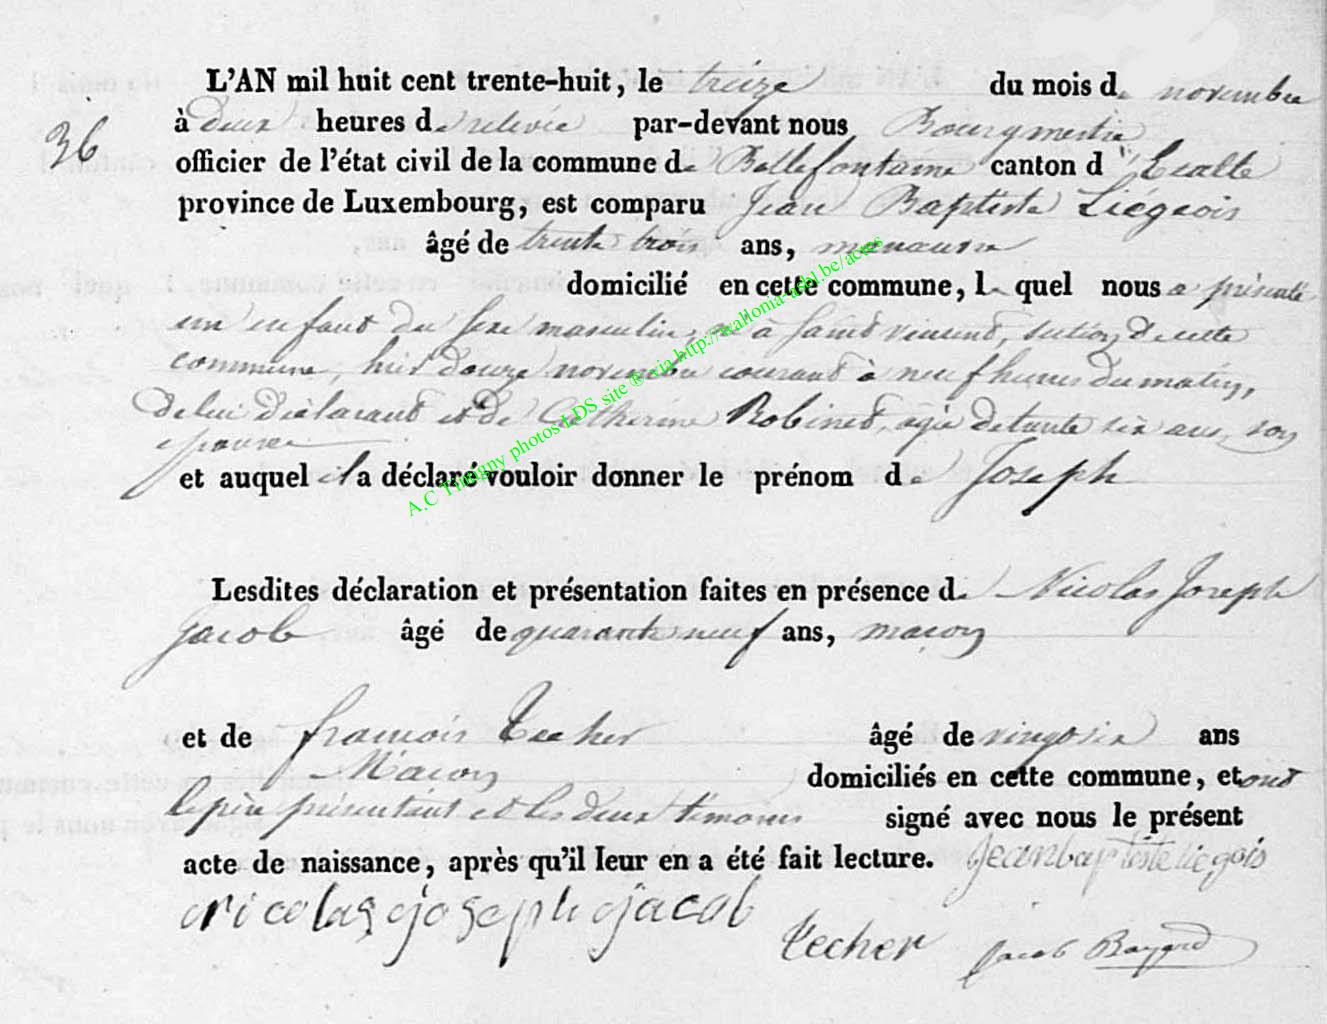 L'AN mil huit cent trente-huit, le treize du mois de novembre
36
à deux heures de relevée par-devant nous Bourgmestre
officier de l'état civil de la commune de Bellefontaine canton d'Etalle
province de Luxembourg, est comparu Jean Baptiste Liégeois
âgé de trente trois ans, manœuvre
domicilié en cette commune, lequel nous a présenté
un enfant du sexe masculin, né à Saint vincent, section de cette
commune, hier douze novembre courant à neuf heures du matin,
de lui déclarant et de Catherine Robinet, agée de trente six ans, son
epouse
et auquel il a déclaré vouloir donner le prénom de Joseph
A.C Tintigny photos LDS site ® via http://wallonia-asbl.be/actes
Lesdites déclaration et présentation faites en présence de Nicolas Joseph
Jacob âgé de quarante neuf ans, maçon
et de françois Techer âgé de vingt six ans
Maçon domiciliés en cette commune, et ont
le père présentant et les deux témoins signé avec nous le présent
acte de naissance, après qu'il leur en a été fait lecture. jean baptiste liegois
nicolas joseph jacob
techer Jacob